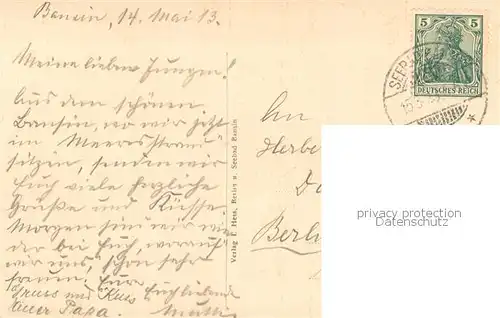 Bansin, 14. Mai 13.
Meine lieben Jungen!
Aus dem schönen
Bansin, wo wir jetzt
im Meeresstrand
sitzen, senden wir
Euch viele herzliche
Grüße und Küsse.
Morgen sind wir wie-
der bei Euch, worauf
wir uns schon sehr
freuen. Eure
Euch liebende
Mutti
Gruss und Kuss
Euer Papa.
Verlag E. Hess, Berlin u. Seebad Bansin
5 5
DEUTSCHES REICH
SEEB
An
Herbe
Do
Berli
privacy protection
Datenschutz